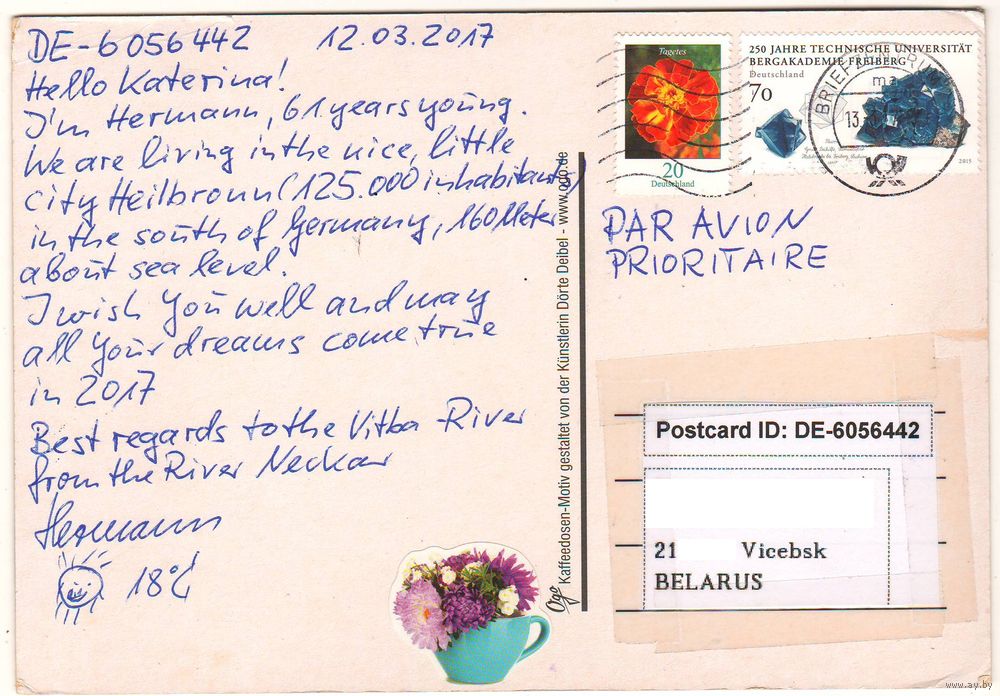 DE-6056442 12.03.2017
Hello Katerina!
I'm Hermann, 61 years young.
We are living in the nice, little
city Heilbronn (125.000 inhabitants)
in the south of Germany, 160 Meter
about sea level.
I wish You well and may
all Your dreams come true
in 2017
Best regards to the Vitba-River
from the River Neckar
Hermann
18°C
Oge Kaffeedosen-Motiv gestaltet von der Künstlerin Dörte Deibel - www.oge.de
Tagetes
20
Deutschland
250 JAHRE TECHNISCHE UNIVERSITÄT
BERGAKADEMIE FREIBERG
Deutschland
70
2015
BRIEFZENTRUM
13
PAR AVION
PRIORITAIRE
Postcard ID: DE-6056442
21 Vicebsk
BELARUS
www.ay.by